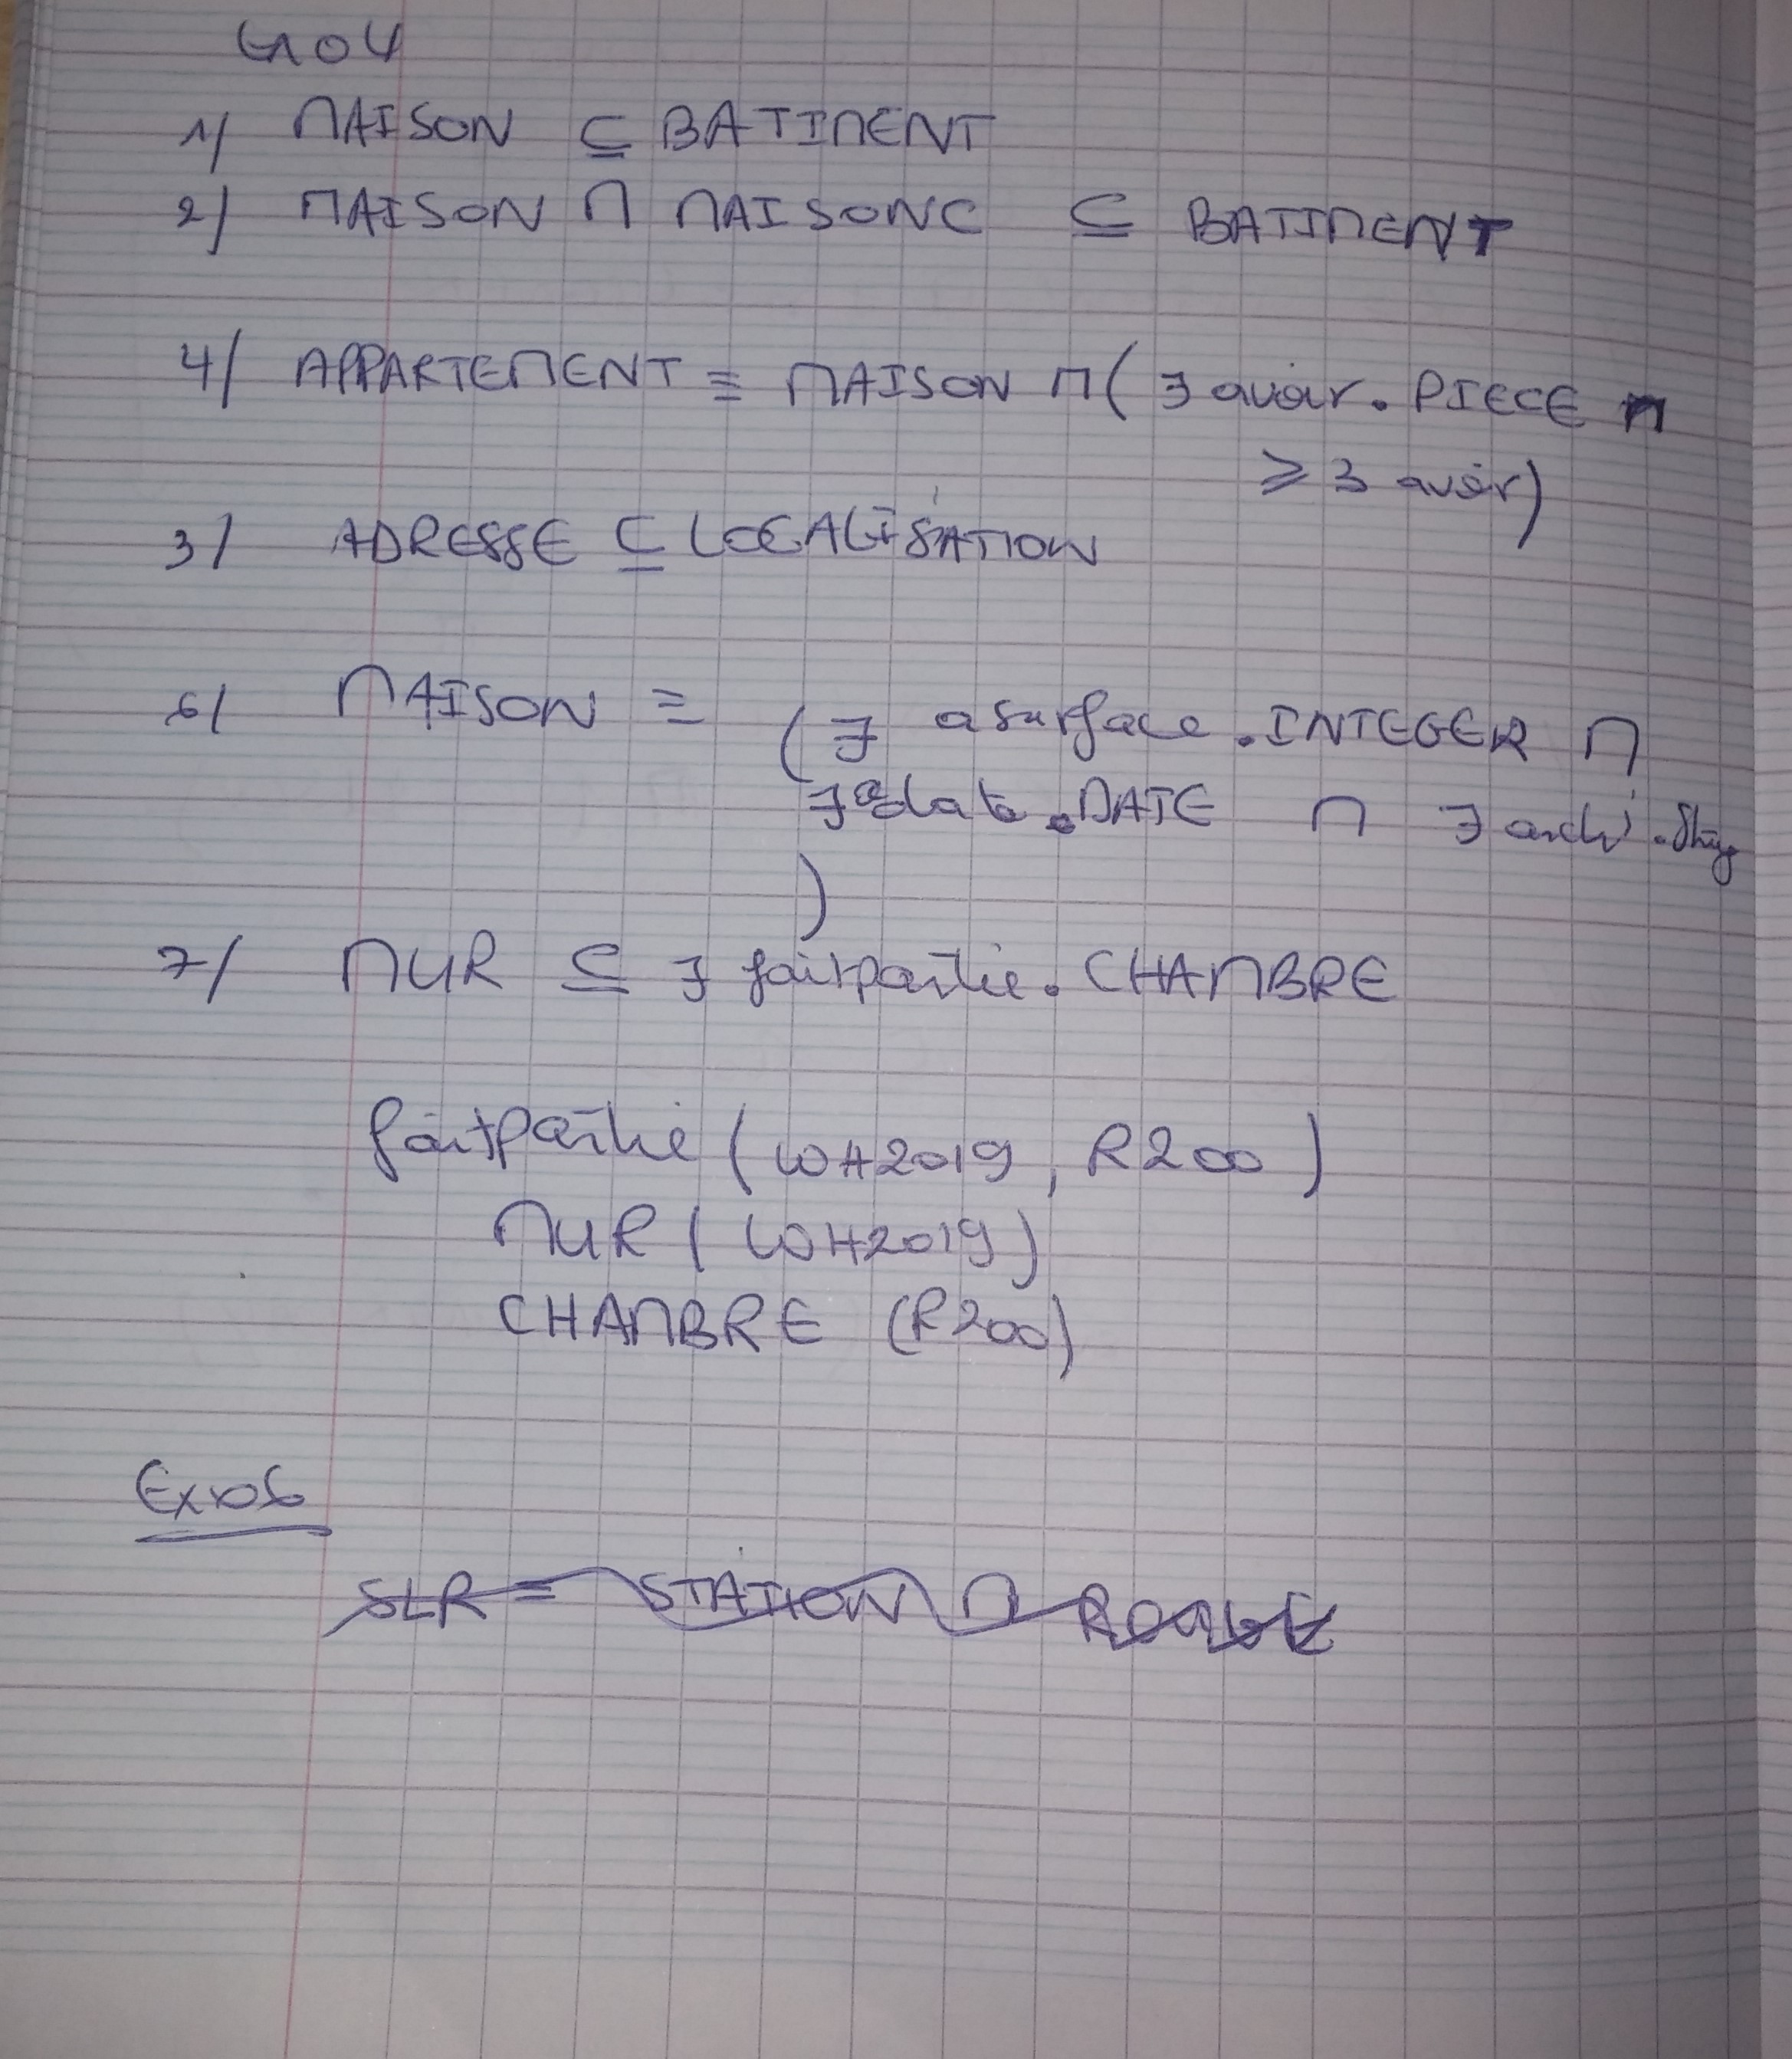 1/ MAISON ⊆ BATIMENT
2/ MAISON ⊓ MAISONC ⊆ BATIMENT
4/ APPARTEMENT ≡ MAISON ⊓ ( ∃ avoir . PIECE ⊓
≥ 3 avoir )
3/ ADRESSE ⊆ LOCALISATION
6/ MAISON ≡ ( ∃ asurface . INTEGER ⊓
∃ adate . DATE ⊓ ∃ archi . String
)
7/ MUR ⊆ ∃ faitpartie . CHAMBRE
faitpartie ( WH2019 , R200 )
MUR ( WH2019 )
CHAMBRE ( R200 )
Exo6
SLR = STATION ⊓ ROUGE